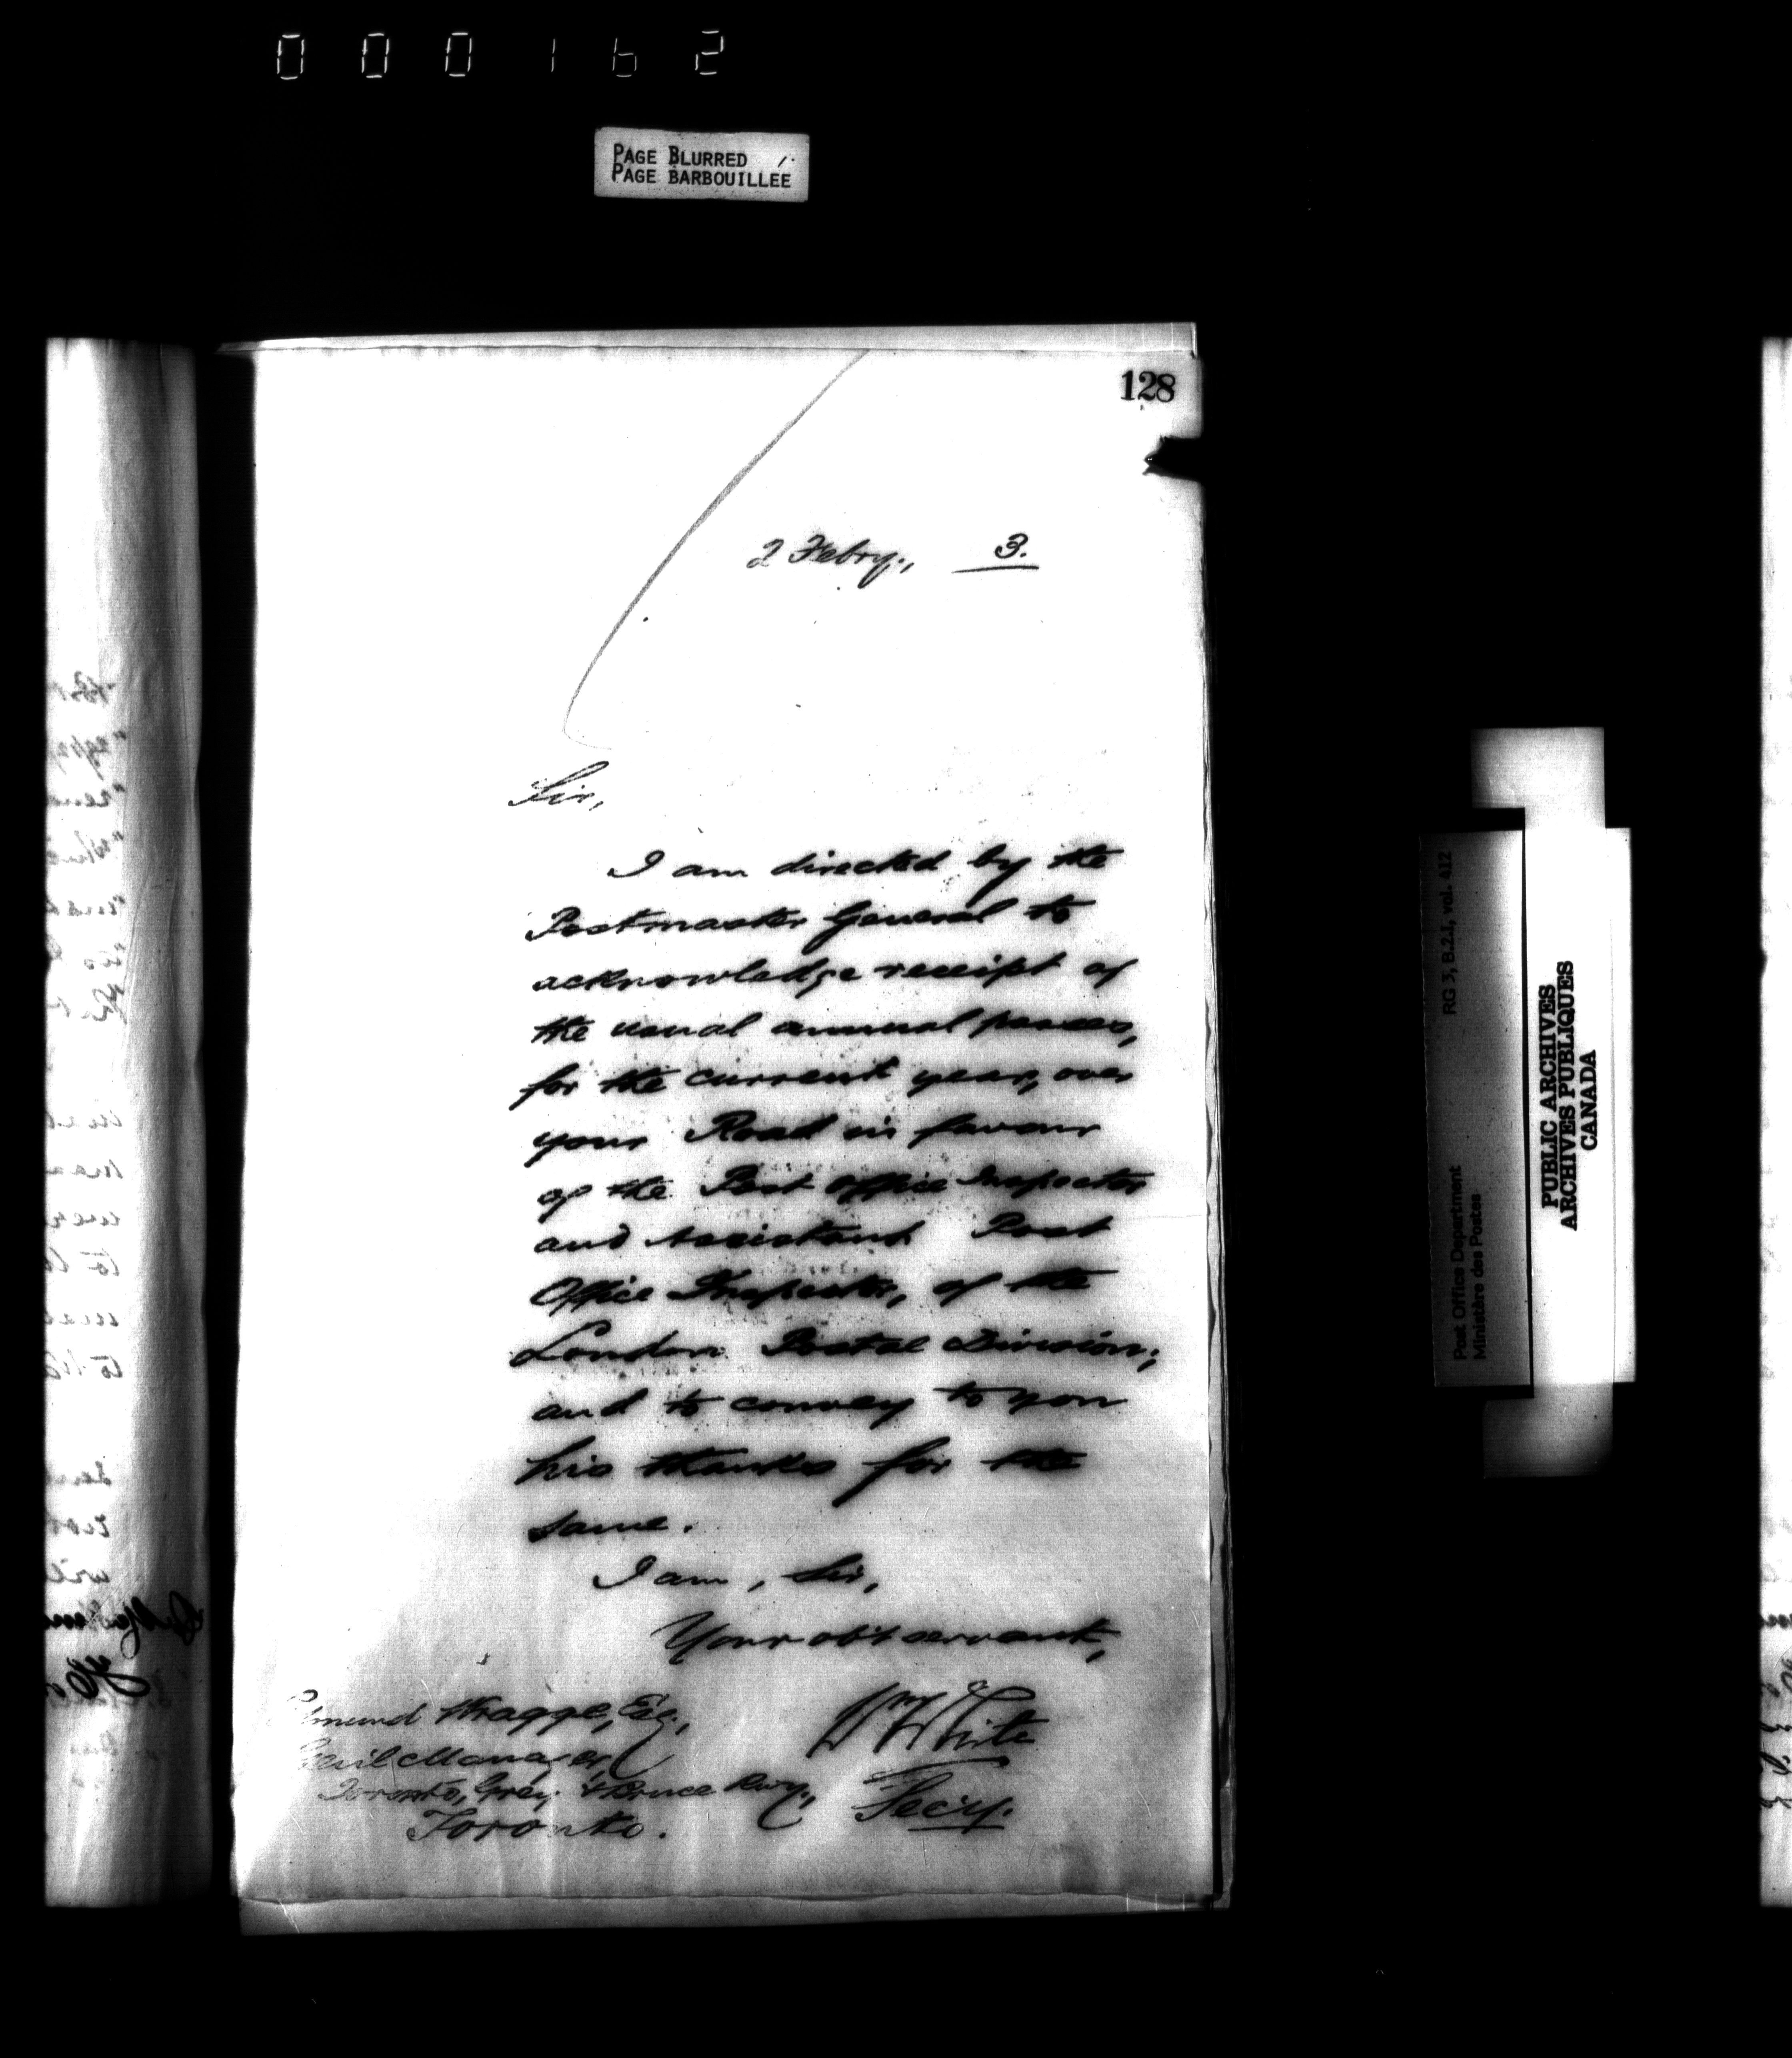 000162
PAGE BLURRED
PAGE BARBOUILLÉE
128
2 Febry., 3.
Sir,
I am directed by the
Postmaster General to
acknowledge receipt of
the usual annual passes,
for the current year, over
your Road in favour
of the Post Office Inspector
and Assistant Post
Office Inspector, of the
London Postal Division;
and to convey to you
his thanks for the
same.
I am, Sir,
Your obt servant,
Wm White
Secy.
Edmund Wragge, Esq.,
Genl Manager,
Toronto, Grey & Bruce Rwy.,
Toronto.
RG 3, B.2.1, vol. 412
Post Office Department
Ministère des Postes
PUBLIC ARCHIVES
ARCHIVES PUBLIQUES
CANADA